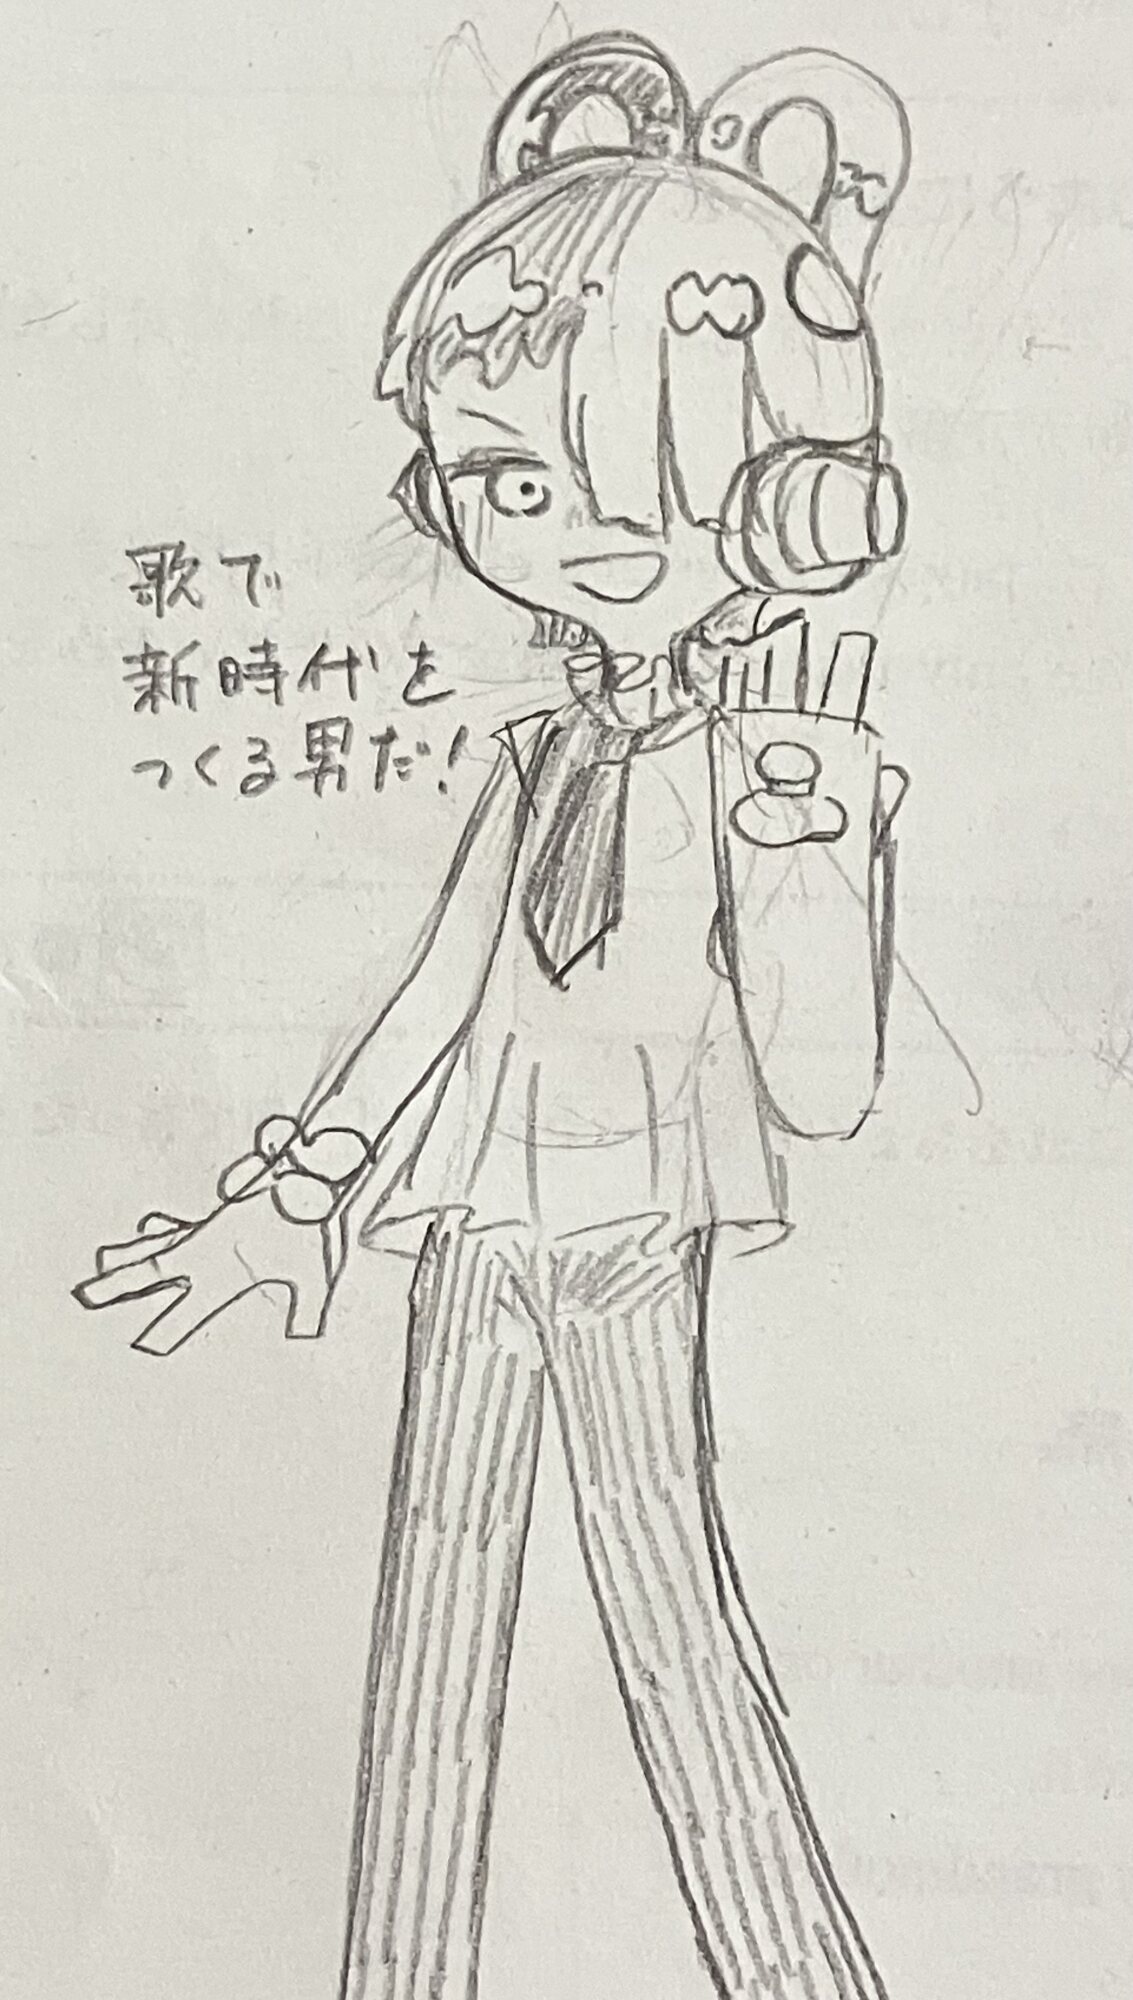 歌で
新時代を
つくる男だ!